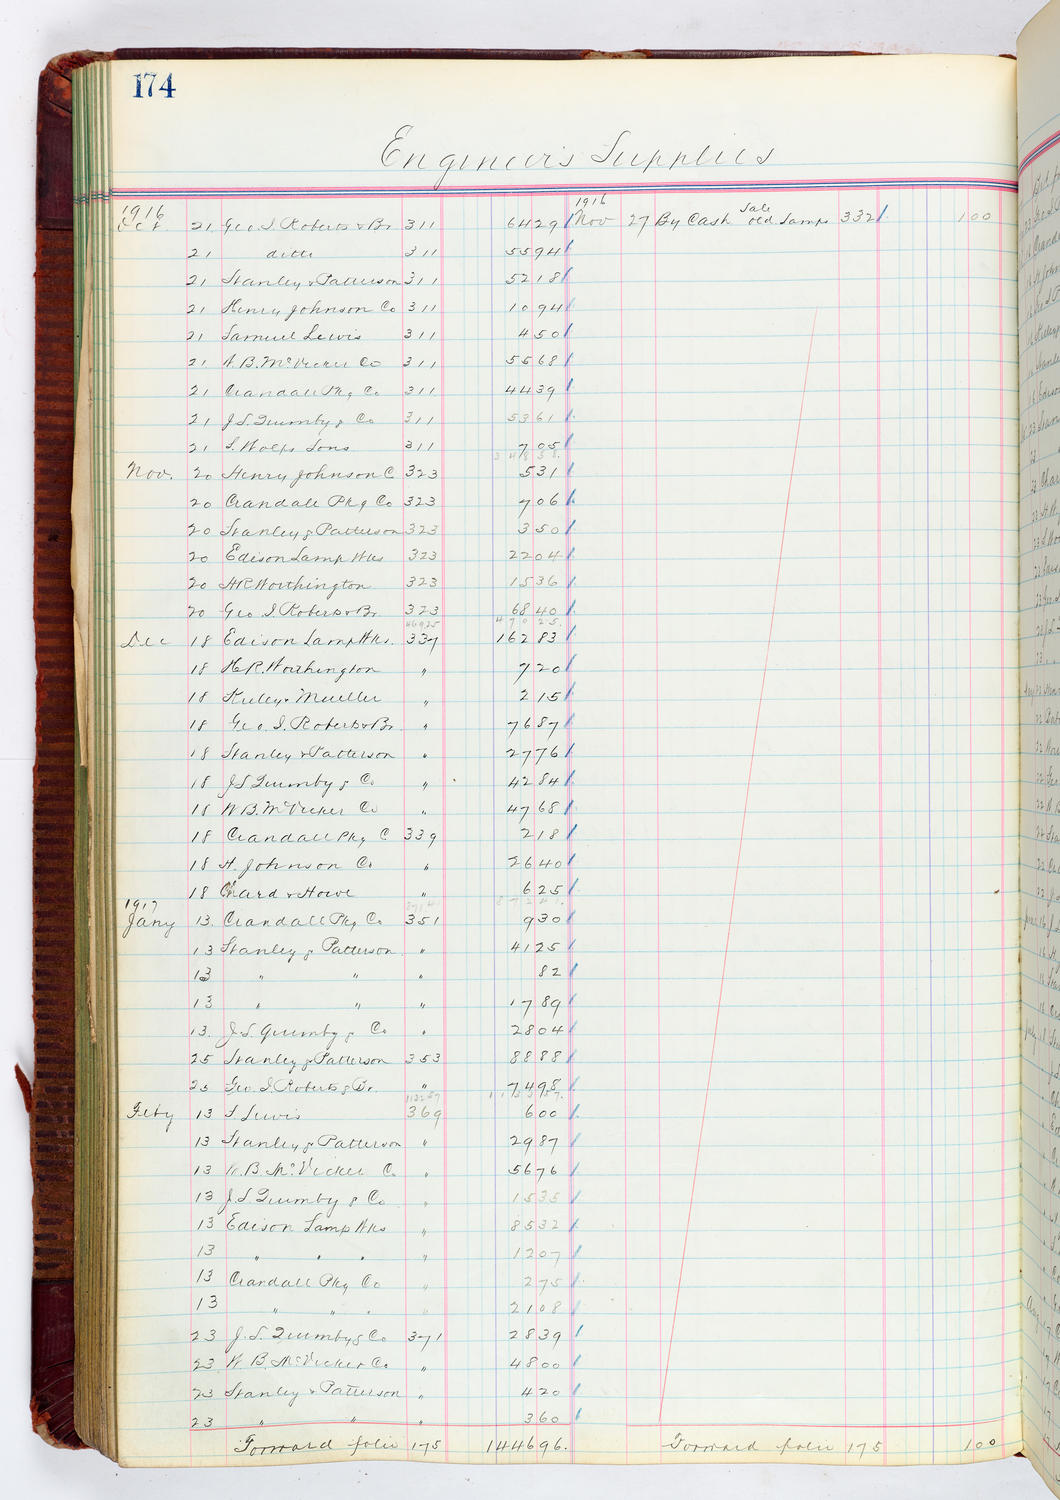 174
Engineer's Supplies
1916
Oct 21 Geo. I. Roberts & Br 311 6429
21 ditto 311 5594
21 Stanley & Patterson 311 5218
21 Henry Johnson Co 311 1094
21 Samuel Lewis 311 450
21 W. B. McVicker Co 311 5568
21 Crandall Pkg Co 311 4439
21 J. S. Quimby & Co 311 5361
21 S. Wolfs Sons 311 705
34858.
Nov. 20 Henry Johnson C 323 531
20 Crandall Pkg Co 323 706
20 Stanley & Patterson 323 350
20 Edison Lamp Wks 323 2204
20 H R Worthington 323 1536
20 Geo I. Roberts & Br. 323 6840
46925 47025.
Dec 18 Edison Lamp Wks. 337 16283
18 H. R. Worthington " 720
18 Kieley & Mueller " 215
18 Geo. I. Roberts & Br. " 7687
18 Stanley & Patterson " 2776
18 J S Quimby & Co " 4284
18 W B. McVicker Co " 4768
18 Crandall Pkg C 339 218
18 H. Johnson Co. " 2640
18 Chard & Howe " 625
87241 87241.
1917
Jany 13. Crandall Pkg Co 351 930
13 Stanley & Patterson " 4125
13 " " " 82
13 " " " 1789
13. J. S. Quimby & Co " 2804
25 Stanley & Patterson 353 8888
25 Geo. I. Roberts & Br. " 7498
113357 113357.
Feby 13 S Lewis 369 600
13 Stanley & Patterson " 2987
13 W. B. McVicker C. " 5676
13 J. S. Quimby & Co " 1535
13 Edison Lamp Wks " 8532
13 " " " " 1207
13 Crandall Pkg Co " 275
13 " " " " 2108
23 J. S. Quimby & Co 371 2839
23 W. B. McVicker Co " 4800
23 Stanley & Patterson " 420
23 " " " 360
Forward folio 175 144696.
1916
Nov 27 By Cash Sale old Lamps 332 100
Forward folio 175 100